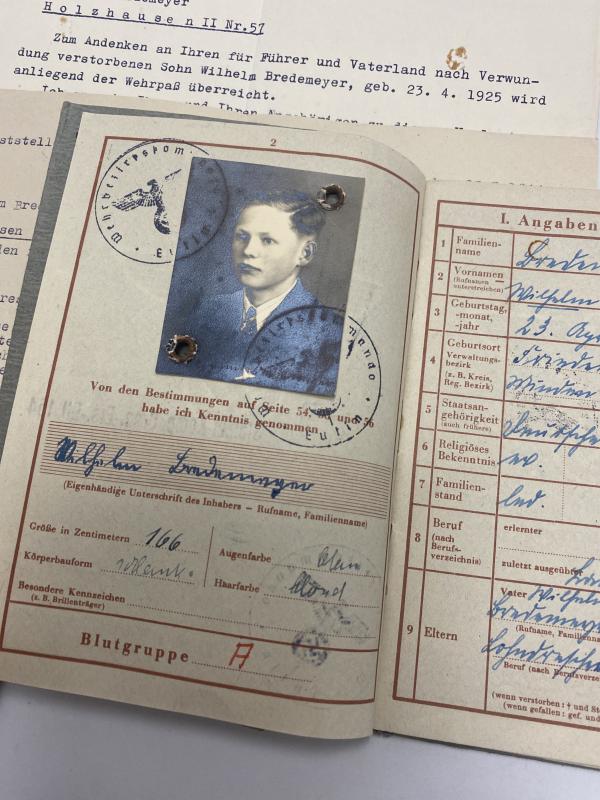 demeyer
Holzhausen II Nr.57
Zum Andenken an Ihren für Führer und Vaterland nach Verwun-
dung verstorbenen Sohn Wilhelm Bredemeyer, geb. 23. 4. 1925 wird
anliegend der Wehrpaß überreicht.
2
Wehrbezirkskommando
Minden
Wehrbezirkskommando
Minden
Von den Bestimmungen auf Seite 54, und 56
habe ich Kenntnis genommen
Wilhelm Bredemeyer
(Eigenhändige Unterschrift des Inhabers – Rufname, Familienname)
Größe in Zentimetern 166
Körperbauform schlank.
Augenfarbe blau
Haarfarbe blond
Besondere Kennzeichen
(z. B. Brillenträger)
Blutgruppe A
I. Angaben
1 Familien-
name
Breden
2 Vornamen
(Rufnamen
unterstreichen)
Wilhelm
3 Geburtstag,
-monat,
-jahr
23. Apr
4 Geburtsort
Verwaltungs-
bezirk
(z. B. Kreis,
Reg. Bezirk)
Minden
5 Staatsan-
gehörigkeit
(auch frühere)
6 Religiöses
Bekenntnis
ev.
7 Familien-
stand
led.
8 Beruf
(nach
Berufs-
verzeichnis)
erlernter
zuletzt ausgeübter
9 Eltern
Vater Wilhelm
Bredemeyer
(Rufname, Familienna
Beruf (nach Berufsverze
(wenn verstorben: † und St
(wenn gefallen: gef. und